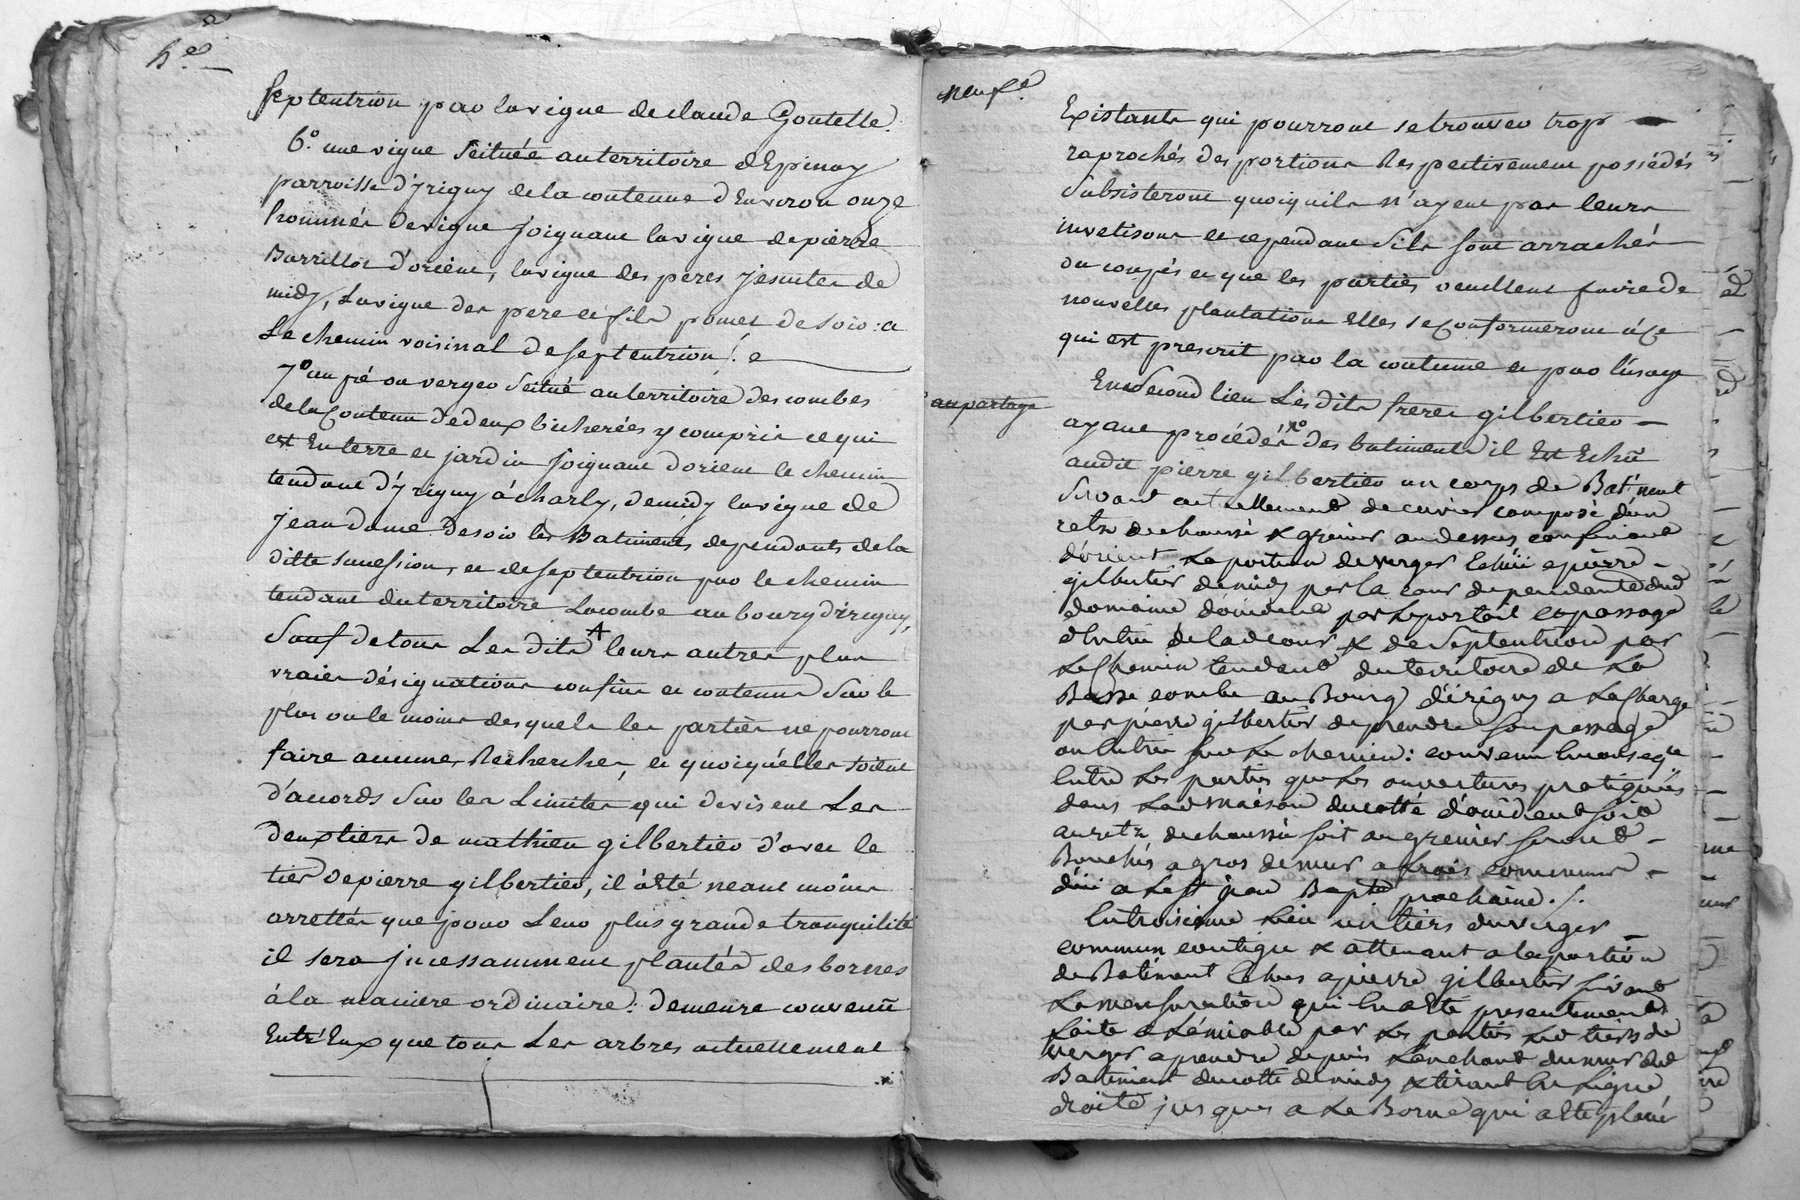 h.e
septentrion par la vigne de claude Goutelle.
6.° une vigne scituée au territoire d'Epinay
parroisse d'yrigny de la contenue d'Environ onze
hommées de vigne joignant la vigne de pierre
Burrillon d'orient, la vigne des peres jesuites de
midy, la vigne des pere et fils pomet de soir: et
Le chemin voisinal de septentrion ./. 
7° un pré ou verger scitué au territoire des combes
de la Contenue de deux bicherées y compris ce qui
est En terre et jardin joignant d'orient le chemin
tendant d'yrigny à charly, de midy la vigne de
jean dame de soir les Batiments dependants de la
ditte succession, et de septentrion par le chemin
tendant du territoire Lacombe au bourg d'irigny,
Sauf de tous Les dits A leurs autres plus
vraies désignations confins et contenue Sur le
plus ou le moins desquels les parties ne pourront
faire aucunes Recherches, et quoiqu'élles soient
d'accords Sur les Limites qui devisent Les
deux tiers de mathieu gilbertier d'avec le
tier de pierre gilbertier, il à été neant moins
arrettés que pour Leur plus grande tranquilité
il sera jncessamment plantés des bornes
à la maniere ordinaire: demeure convenü
Entr'Eux que tous Les arbres actuellement
neuf.e
Existants qui pourront se trouver trop
raprochés des portions Respectivement possédés
Subsisteront quoiquils n'ayent pas leurs
invetisons et cependant S'ils sont arrachés
ou coupés et que les parties veuillent faire de
nouvelles plantations Elles se Conformeront à Ce
qui est prescrit par la coutume et par l'usage
au partage
En Second lieu Les dits freres gilbertier
ayant procédés 1° des batiments il Est Echü
audit pierre gilbertier un corps de Batiment
Servant actuellement de cuvier composé d'un
retz de chaussé & grenier au dessus confinant
d'orient La portion de verger Echüe a pierre
gilbertier de midy par la cour dependante dud
domaine d'occident par Le portail et passage
d'Entrée de lad cour & de Septentrion par
Le Chemin tendant du territoire de La
Basse combe au Bourg d'irigny a La Charge
par pierre gilbertier de prendre Son passage
ou Entrée Sur Le chemin: convenu En conseqce
Entre Les parties que Les ouvertures pratiquées
dans Lad maison du cotté d'occident Soit
au retz de chaussé soit au grenier Seront
Bouchés a gros de mur a frais communs
d'ici a La St jean Baptte prochaine ./.
En troisieme Lieu un tiers du verger
commun contigu & attenant a la portion
de Batiment Echus a pierre gilbertier Suivant
La mensuration qui En a Eté presentement
faite a L'émiable par Les parties Led tiers de
verger a prendre depuis L'enchant du mur dud
Batiment du cotté de midy & tirant En Ligne
droite jusques a La Borne qui a Eté planté